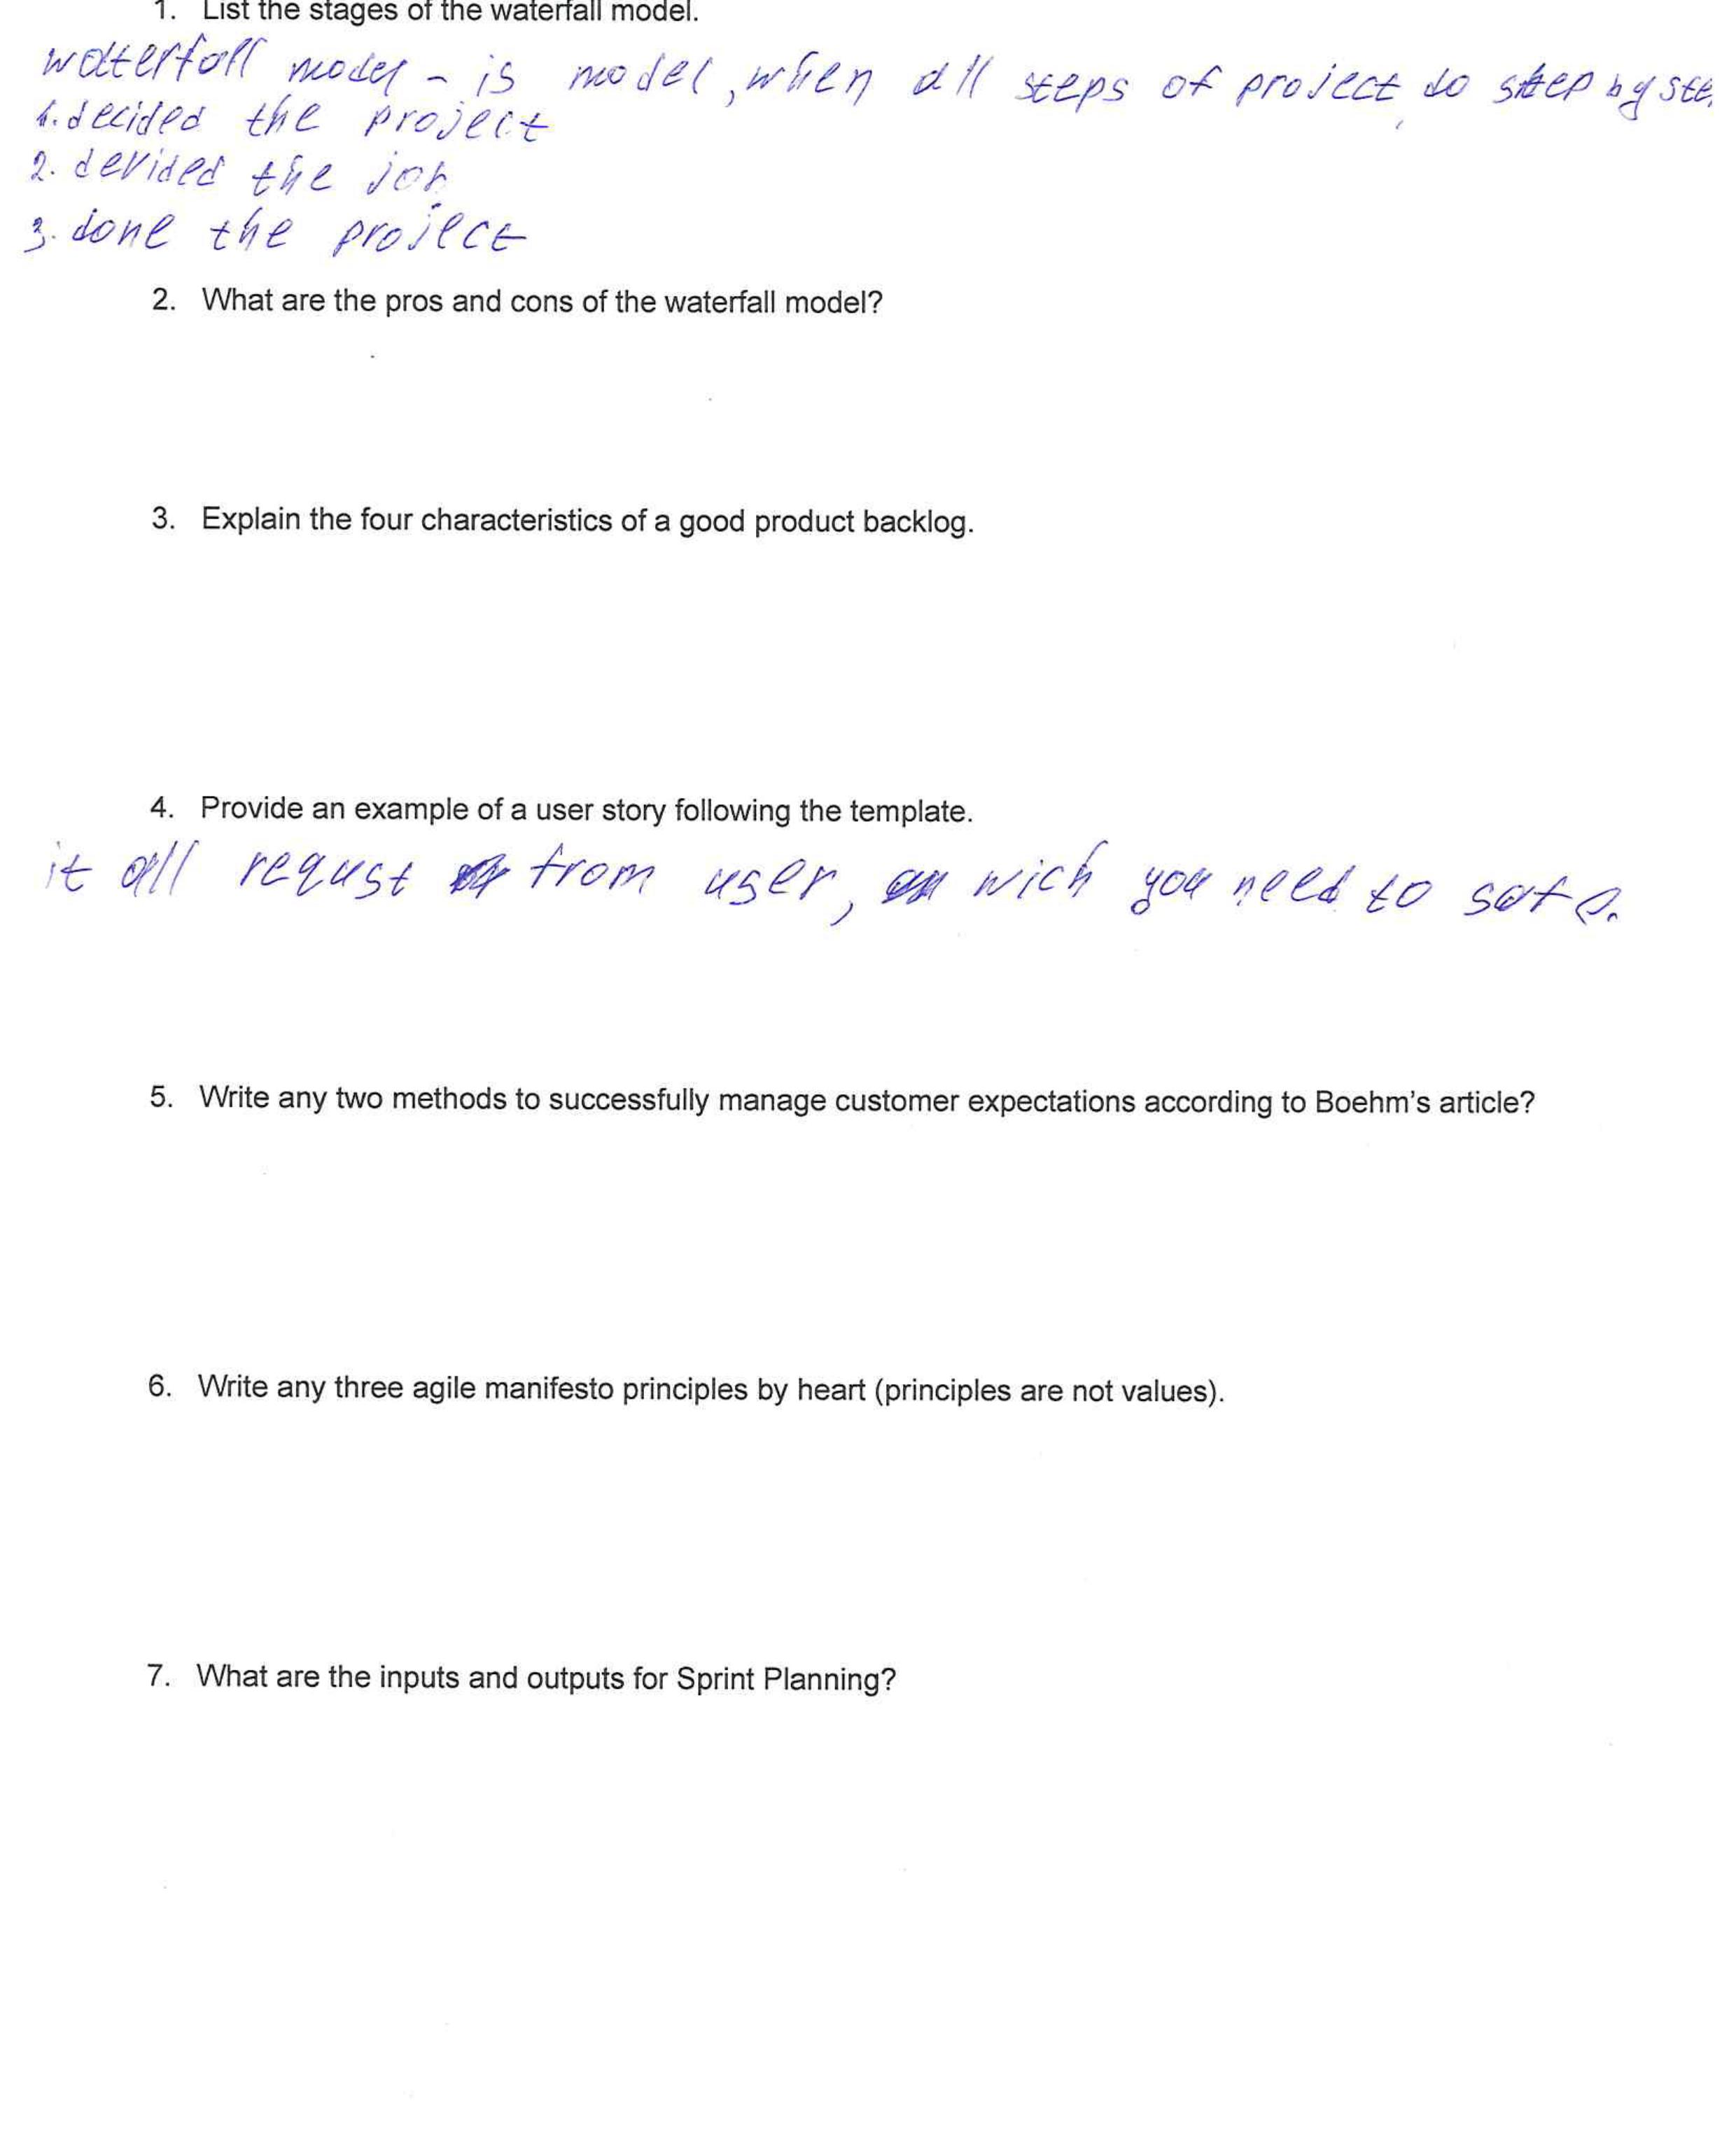 1. List the stages of the waterfall model.
waterfall model - is model, when all steps of project do step by ste
1. decided the project
2. devided the job
3. done the project
2. What are the pros and cons of the waterfall model?
3. Explain the four characteristics of a good product backlog.
4. Provide an example of a user story following the template.
it all requst from user, wich you need to
5. Write any two methods to successfully manage customer expectations according to Boehm's article?
6. Write any three agile manifesto principles by heart (principles are not values).
7. What are the inputs and outputs for Sprint Planning?